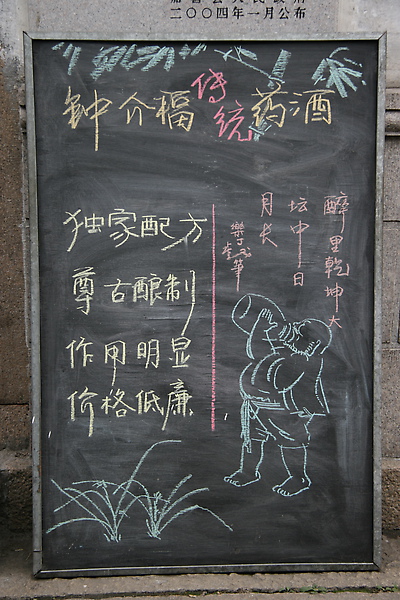 嘉善县人民政府
二〇〇四年一月公布
钟介福传统药酒
独家配方
尊古酿制
作用明显
价格低廉
醉里乾坤大
坛中日
月长